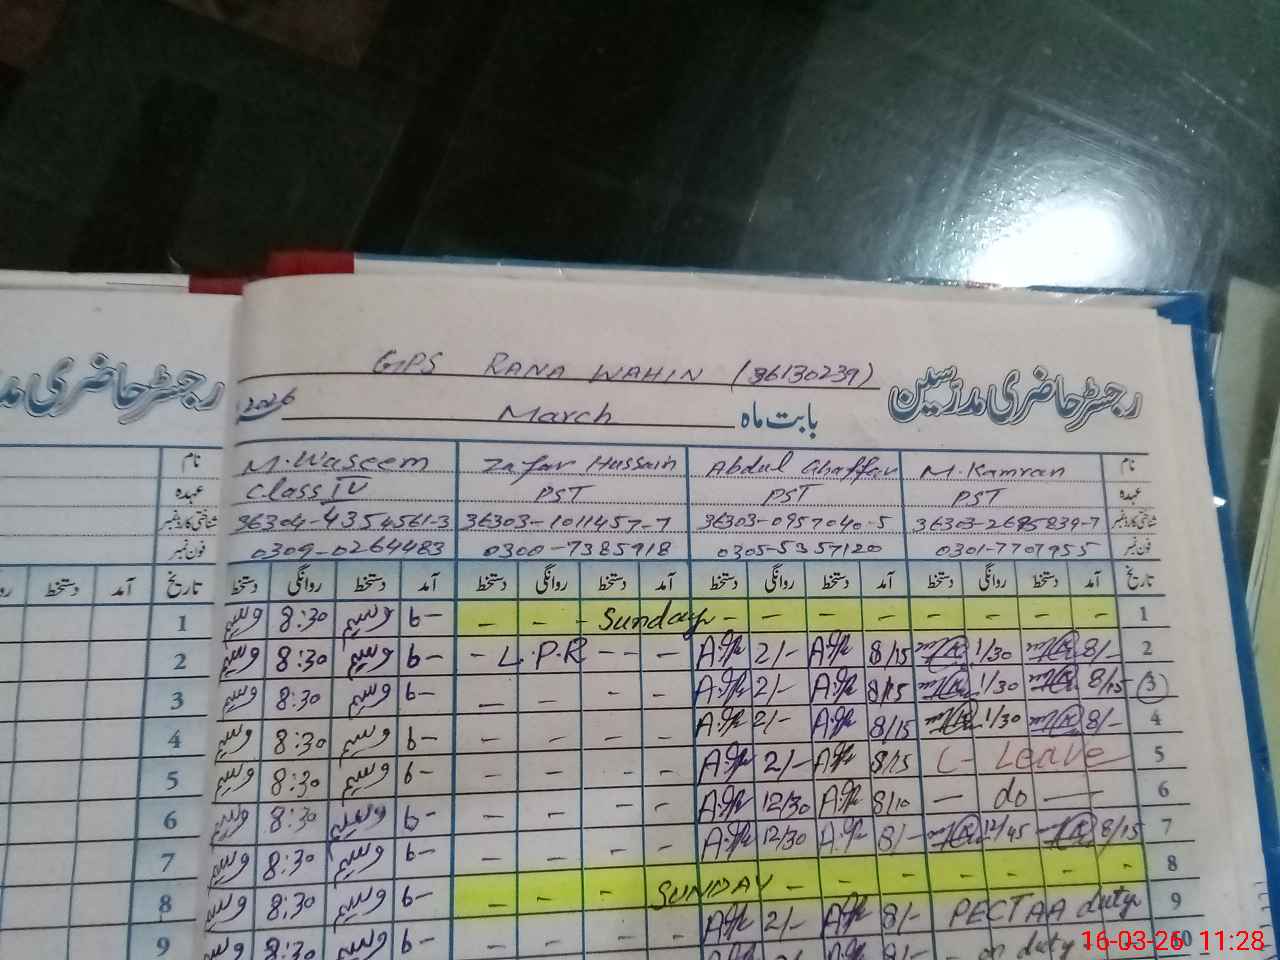 GPS RANA WAHIN (36130239)
رجسٹر حاضری مدرسین
2026 March بابت ماہ
رجسٹر حاضری
نام M. Kamran Abdul Ghaffar Zafar Hussain M. Waseem
عہدہ PST PST PST Class IV
شناختی کارڈ نمبر 36303-2685839-7 36303-0957040-5 36303-1011457-7 36304-4354561-3
فون نمبر 0301-7707955 0305-5357120 0300-7385918 0309-0264483
تاریخ آمد دستخط روانگی دستخط آمد دستخط روانگی دستخط آمد دستخط روانگی دستخط آمد دستخط روانگی دستخط
تاریخ آمد دستخط
1 - - - - - - - - Sunday - - - 6- وسیم 8:30 وسیم
2 8/- 1/30 8/15 2/- - - - L.P.R - 6- وسیم 8:30 وسیم
3 8/15 1/30 8/15 2/- - - - - 6- وسیم 8:30 وسیم
4 8/- 1/30 8/15 2/- - - - - 6- وسیم 8:30 وسیم
5 C- Leave 8/15 2/- - - - - 6- وسیم 8:30 وسیم
6 — do — 8/10 12/30 - - - - 6- وسیم 8:30 وسیم
7 8/15 12/45 8/- 12/30 - - - - 6- وسیم 8:30 وسیم
8 - - - - - - - SUNDAY - - - 6- وسیم 8:30 وسیم
9 PECTAA duty 8/- 2/- - - - - 6-
10 on duty 8/-
1
2
3
4
5
6
7
8
9
16-03-26 11:28